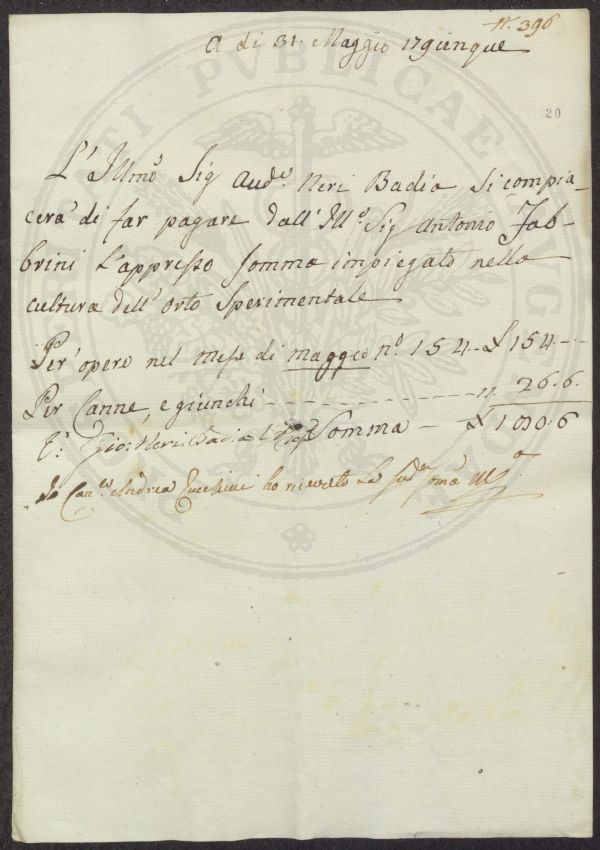 n.° 396
A di 31. Maggio 179cinque
20
L'Illmo Sig Aude. Neri Badia si compia-
cerà di far pagare dall'Ill.o Sig Antonio Fab-
brini l'appresso somma impiegata nella
cultura dell'Orto Sperimentale
Per opere nel mese di maggio n.° 154 - £ 154 --
Per Canne, e giunchi - - - - - " 26.6.
Gio: Neri Badia Somma - £ 180.6
Io Can.co Andrea Zucchini ho ricevuto la sud.a somma